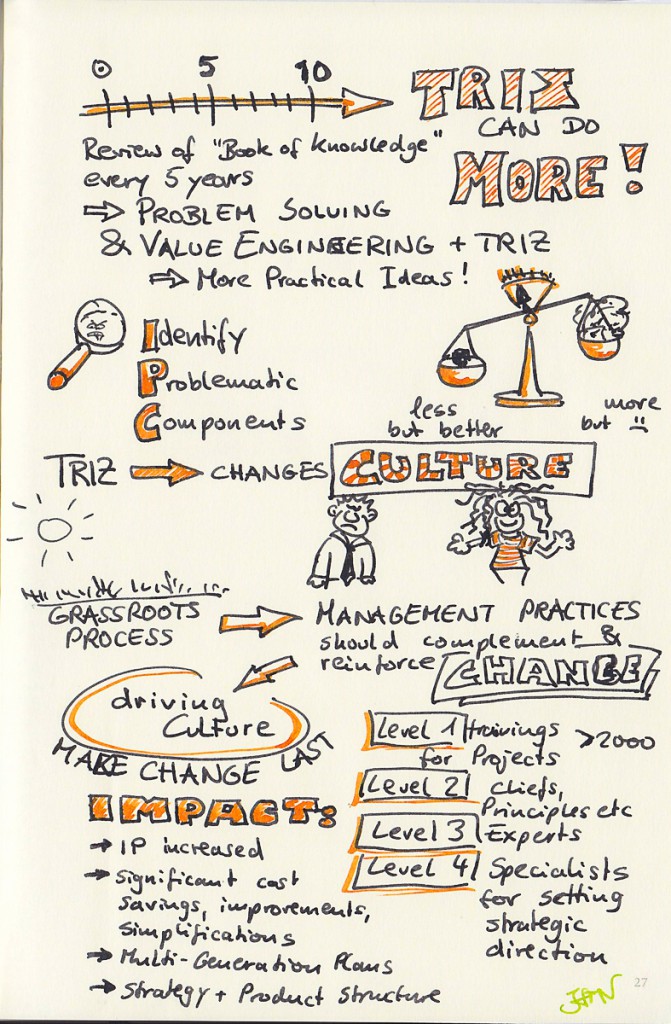 0 5 10
TRIZ
CAN DO
MORE!
Review of "Book of knowledge"
every 5 years
⇒ PROBLEM SOLVING
& VALUE ENGINEERING + TRIZ
⇒ More Practical Ideas!
Identify
Problematic
Components
less
but better
more
but ☹
TRIZ → CHANGES CULTURE
GRASSROOTS
PROCESS
⇒ MANAGEMENT PRACTICES
should complement &
reinforce CHANGE
driving
Culture
MAKE CHANGE LAST
Level 1 trainings >2000
for Projects
Level 2 chiefs,
Principles etc
Level 3 Experts
Level 4 Specialists
for setting
strategic
direction
IMPACT:
→ IP increased
→ significant cost
savings, improvements,
simplifications
→ Multi-Generation Plans
→ Strategy + Product structure
27